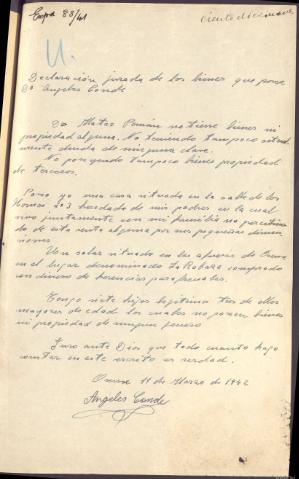 Exp. 83/41
ciento diecinueve
Declaración jurada de los bienes que posee
Dª Angeles Conde
Dn Mateo Román no tiene bienes ni
propiedad alguna. No teniendo tampoco actual-
mente deuda de ninguna clase.
No poseyendo tampoco bienes propiedad
de terceros.
Poseo yo una casa situada en la calle de los
Hornos nº 3 heredada de mis padres en la cual
vivo juntamente con mi familia no percibien-
do de esta renta alguna por sus pequeñas dimen-
siones
Un solar situado en las afueras de Orense
en el lugar denominado comprado
con dinero de herencias
Tengo siete hijos legítimos tres de ellos
mayores de edad los cuales no poseen bienes
ni propiedad de ningun genero
Juro ante Dios que todo cuanto hago
constar en este escrito es verdad.
Orense 11 de Marzo de 1942
Angeles Conde